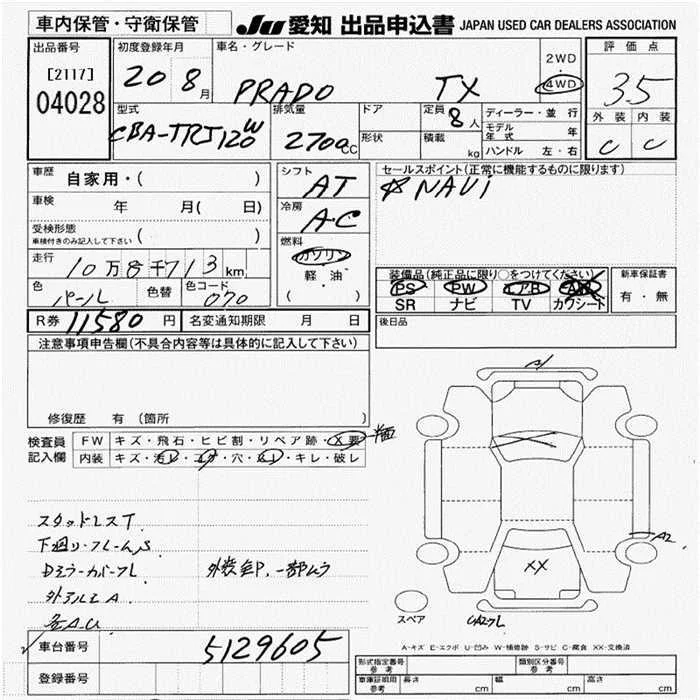 車内保管・守衛保管
JU 愛知 出品申込書 JAPAN USED CAR DEALERS ASSOCIATION
出品番号
[2117]
04028
初度登録年月
20 8月
車名・グレード
PRADO TX
2WD
4WD
評価点
3.5
外装 内装
C C
型式
CBA-TRJ120W
排気量
2700cc
ドア
形状
定員
8人
積載
kg
ディーラー・並行
モデル年式 年
ハンドル 左・右
車歴
自家用・( )
車検
年 月( 日)
受検形態
車検付きのみ記入して下さい ( )
走行
10万8千713km
色
パール
色替
色コード
070
シフト
AT
冷房
A・C
燃料
ガソリン
軽・油
( ・ )
セールスポイント(正常に機能するものに限ります)
NAVi
装備品(純正品に限り○をつけてください)
PS PW エアB AW
SR ナビ TV カワシート
新車保証書
有・無
R券 11580円
名変通知期限 月 日
後日品
注意事項申告欄(不具合内容等は具体的に記入して下さい)
修復歴 有(箇所 )
検査員記入欄
FW キズ・飛石・ヒビ割・リペア跡・X要
内装 キズ・汚レ・コゲ・穴・スレ・キレ・破レ
スタッドレスT
下廻り・フレームS
Dミラーカバーフレ
外アルミA
外装全P、一部ムラ
A1
A2
XX
スペア
A-キズ E-エクボ U-凹み W-補修跡 S-サビ C-腐食 XX-交換済
車台番号
5129605
登録番号
形式指定番号 参考
類別区分番号 参考
車庫証明用 参考
長さ cm
幅 cm
高さ cm